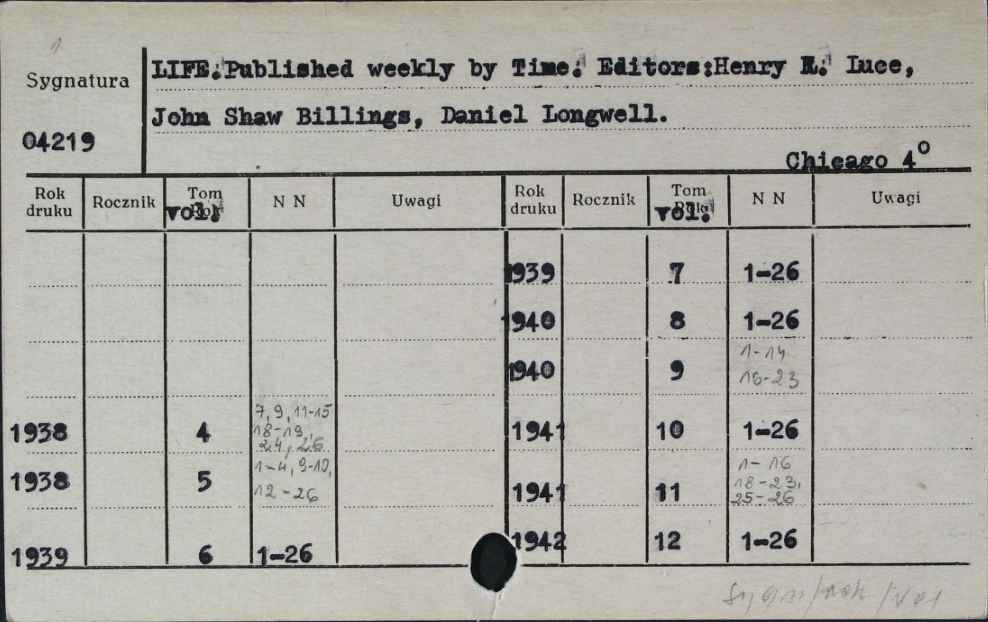 Sygnatura
04219
LIFE.Published weekly by Time. Editors:Henry R. Luce,
John Shaw Billings, Daniel Longwell.
Chicago 4°
Rok druku Rocznik Tom vol. N N Uwagi Rok druku Rocznik Tom vol. N N Uwagi
1939 7 1-26
1940 8 1-26
1940 9 1-14
16-23
1938 4 7, 9, 11-15
18-19,
24, 26
1941 10 1-26
1938 5 1-4, 9-10,
12-26
1941 11 1-16
18-23,
25-26
1939 6 1-26
1942 12 1-26